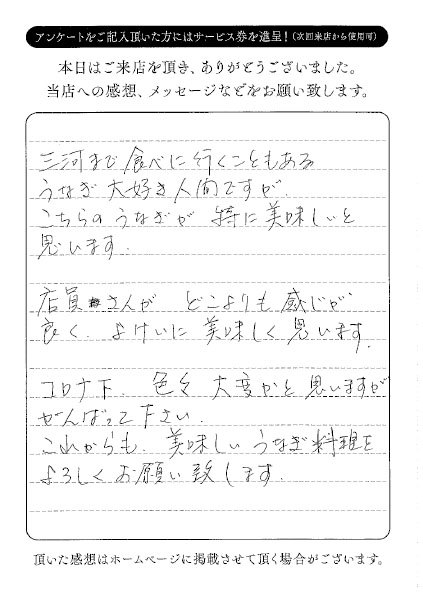 アンケートをご記入頂いた方にはサービス券を進呈！（次回来店から使用可）
本日はご来店を頂き、ありがとうございました。
当店への感想、メッセージなどをお願い致します。
三河まで食べに行くこともある
うなぎ大好き人間ですが、
こちらのうなぎが特に美味しいと
思います。
店員さんが どこよりも感じが
良く、よけいに美味しく思います。
コロナ下、色々大変かと思いますが
がんばって下さい。
これからも、美味しいうなぎ料理を
よろしくお願い致します。
頂いた感想はホームページに掲載させて頂く場合がございます。